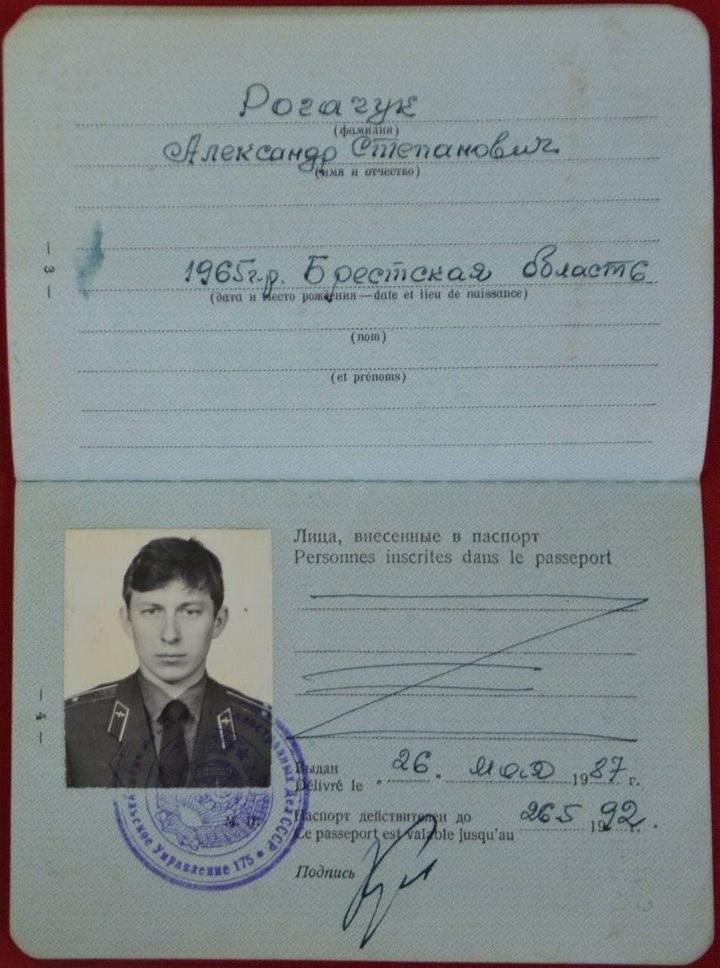 Рогачук
(фамилия)
Александр Степанович
(имя и отчество)
1965г.р. Брестская область
(дата и место рождения — date et lieu de naissance)
(nom)
(et prénoms)
— 3 —
Лица, внесенные в паспорт
Personnes inscrites dans le passeport
Выдан „ 26. мая 1987 г.
Délivré le
Паспорт действителен до 26 5 1992 г.
Ce passeport est valable jusqu'au
М. П.
Подпись
— 4 —
иностранных дел СССР
Консульское Управление 175